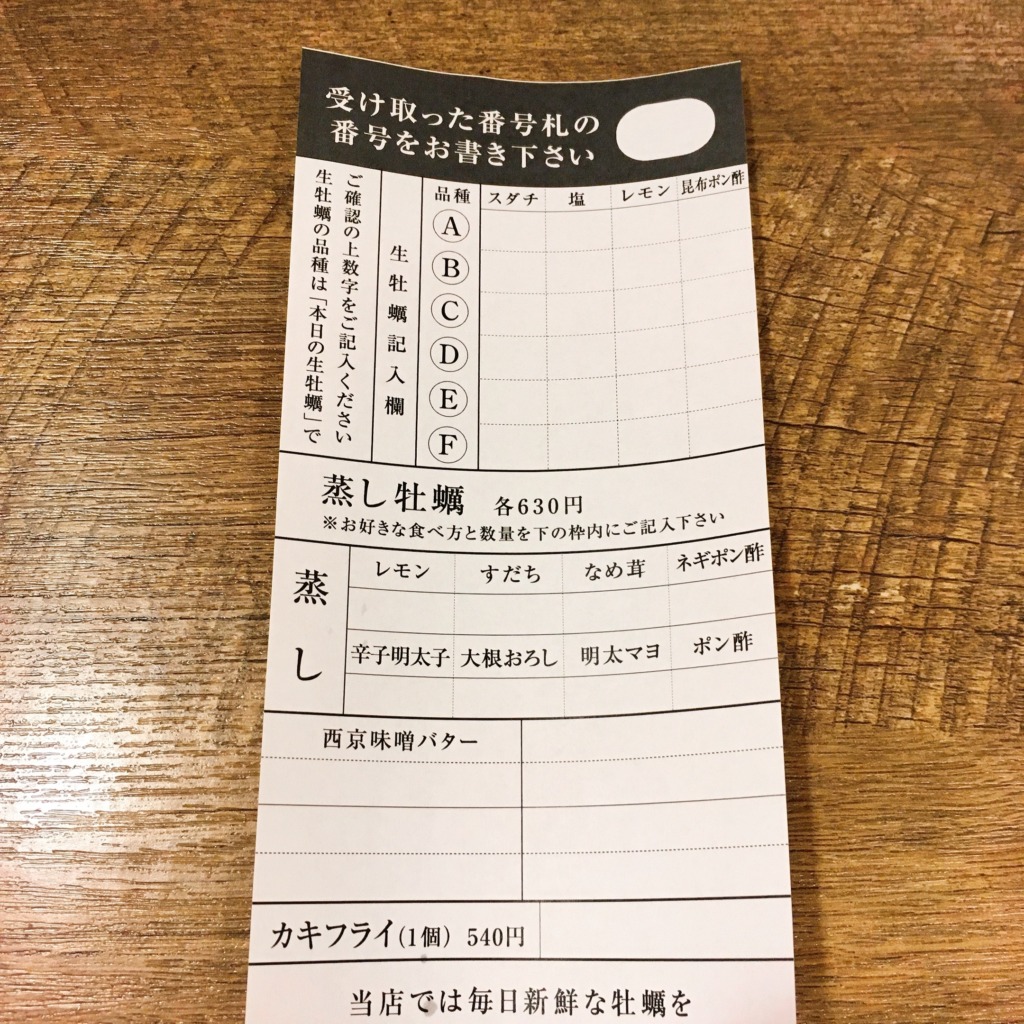 受け取った番号札の
番号をお書き下さい
生牡蠣の品種は「本日の生牡蠣」で
ご確認の上数字をご記入ください
生牡蠣記入欄
品種 スダチ 塩 レモン 昆布ポン酢
A
B
C
D
E
F
蒸し牡蠣 各630円
※お好きな食べ方と数量を下の枠内にご記入下さい
蒸し
レモン すだち なめ茸 ネギポン酢
辛子明太子 大根おろし 明太マヨ ポン酢
西京味噌バター
カキフライ(1個) 540円
当店では毎日新鮮な牡蠣を